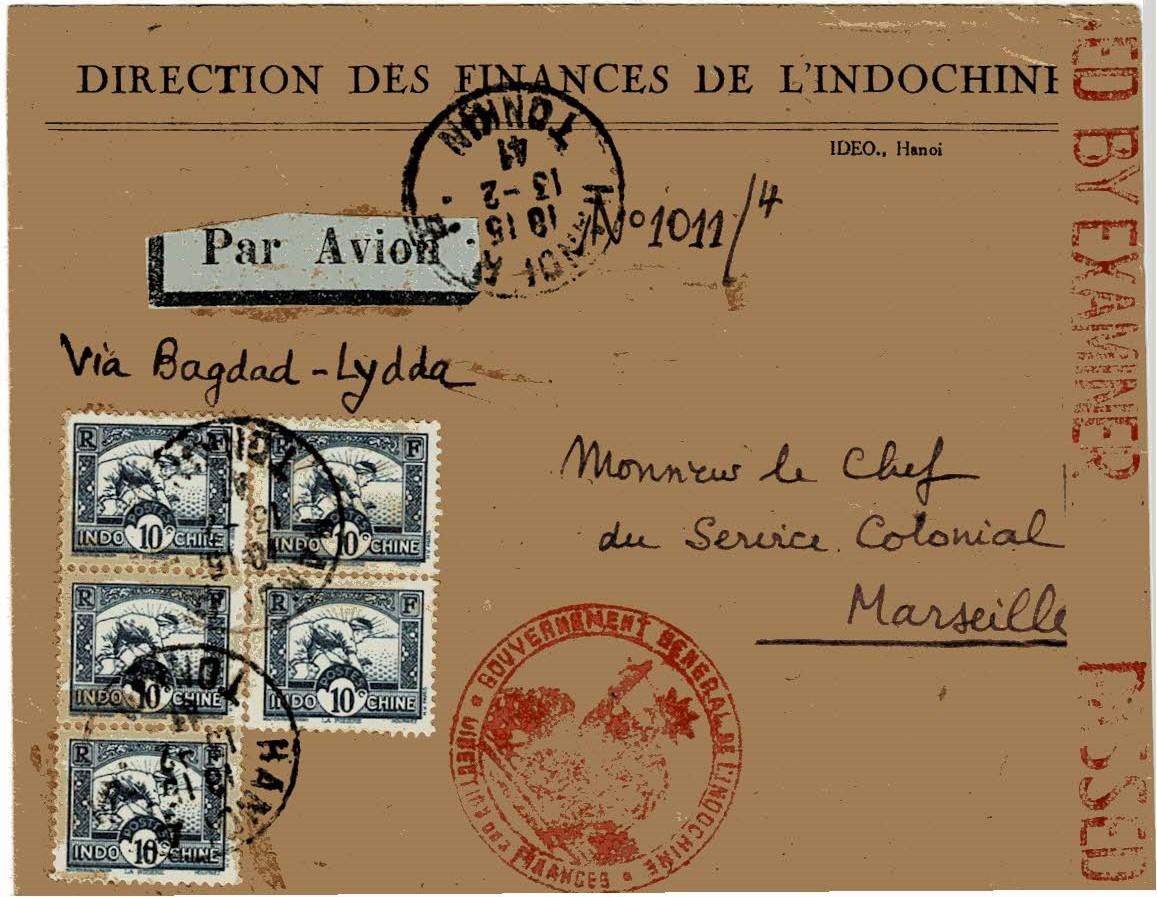 DIRECTION DES FINANCES DE L'INDOCHINE
IDEO., Hanoi
HANOI
TONKIN
10 15
13-2
41
No 1011/4
Par Avion
Via Bagdad-Lydda
R F
POSTES
INDO 10c CHINE
R F
POSTES
INDO 10c CHINE
R F
POSTES
INDO 10c CHINE
R F
POSTES
INDO 10c CHINE
R F
POSTES
INDO 10 CHINE
HANOI
TONKIN
HANOI
Monsieur le Chef
du Service Colonial
Marseille
GOUVERNEMENT GENERAL DE L'INDOCHINE
FINANCES
ED BY EXAMINER
PASSED